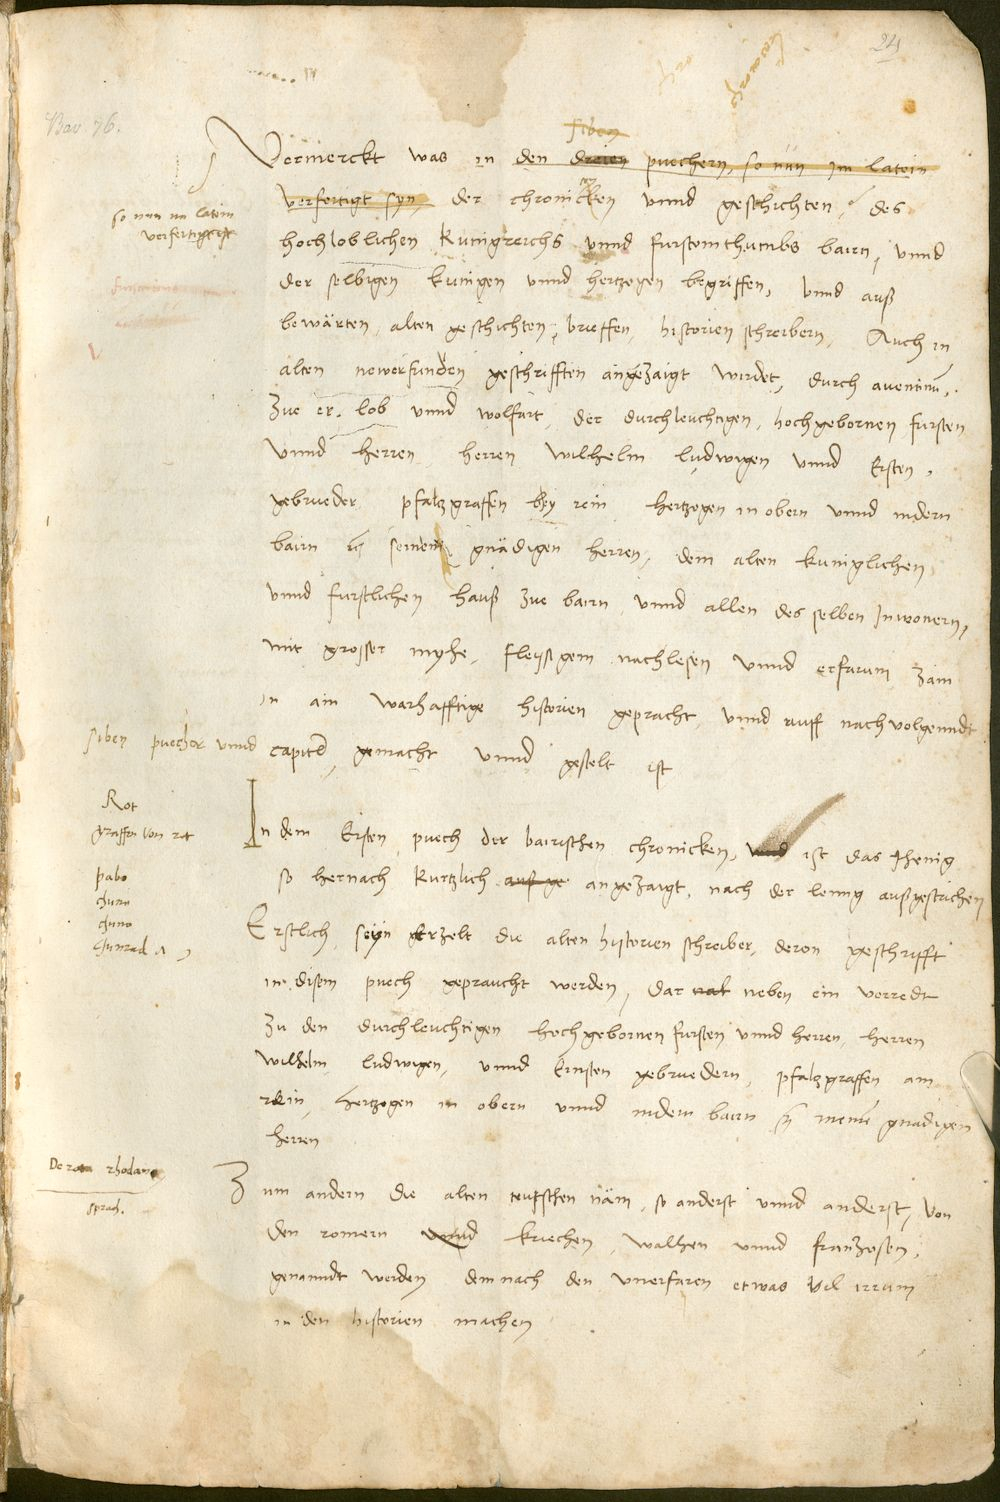 24
Bav. 76.
siben
Vermerckt was in den dreien puechern, so nun im latein
verfertigt syn, der chronicken vnnd geschichten, des
so nun im latein
verfertigt
hochloblichen kunigreichs vnnd furstomthumbs bairn, vnnd
der selbigen kunigen vnnd hertzogen begriffen, vnnd auß
bewärten, alten geschichten, brieffen, historien schreibern, Auch in
alten newerfunden geschrifften angezaigt wirdet, durch auentinu,
zue er, lob vnnd wolfart, der durchleuchtigen, hochgebornen fursten
vnnd herren, herren wilhelm ludwigen vnnd Ersten,
gebrueder pfaltzgraffen bey rein hertzogen in obern vnnd nidern
bairn seinen gnädigen herren, dem alten kuniglichen
vnnd furstlichen hauß zue bairn, vnnd allen des selben Inwonern,
mit grosser myhe, fleyßigem nachlesen vnnd erfarum zam
in ain warhafftige historien gepracht, vnnd auff nachvolgenndt
siben puecher vnnd capitel gemacht vnnd gestelt ist
Rot
graffen von rot
pabo
chuno
chunrad
In dem Ersten puech der bairischen chronicken, vnd ist das jhenig
so hernach kurtzlich auß ge angezaigt, nach der leng außgestrichen
Erstlich, seyn erzelt die alten historien schreiber, deron geschrifft
in disem puech gepraucht werden, dar nat neben ein vorredt
zu den durchleuchtigen hochgebornen fursten vnnd herren, herren
wilhelm, ludwigen, vnnd Ernsten gebruedern, pfaltzgraffen am
rein, hertzogen in obern vnnd nidern bairn meinen gnadigen
herren
rhodano
sprach.
Zum andern die alten teutschen näm, so anderst vnnd anderst, von
den romern vnnd kriechen, walhen vnnd franzosen,
genanndt werden dem nach den vnerfaren etwas vil irrum
in den historien machen